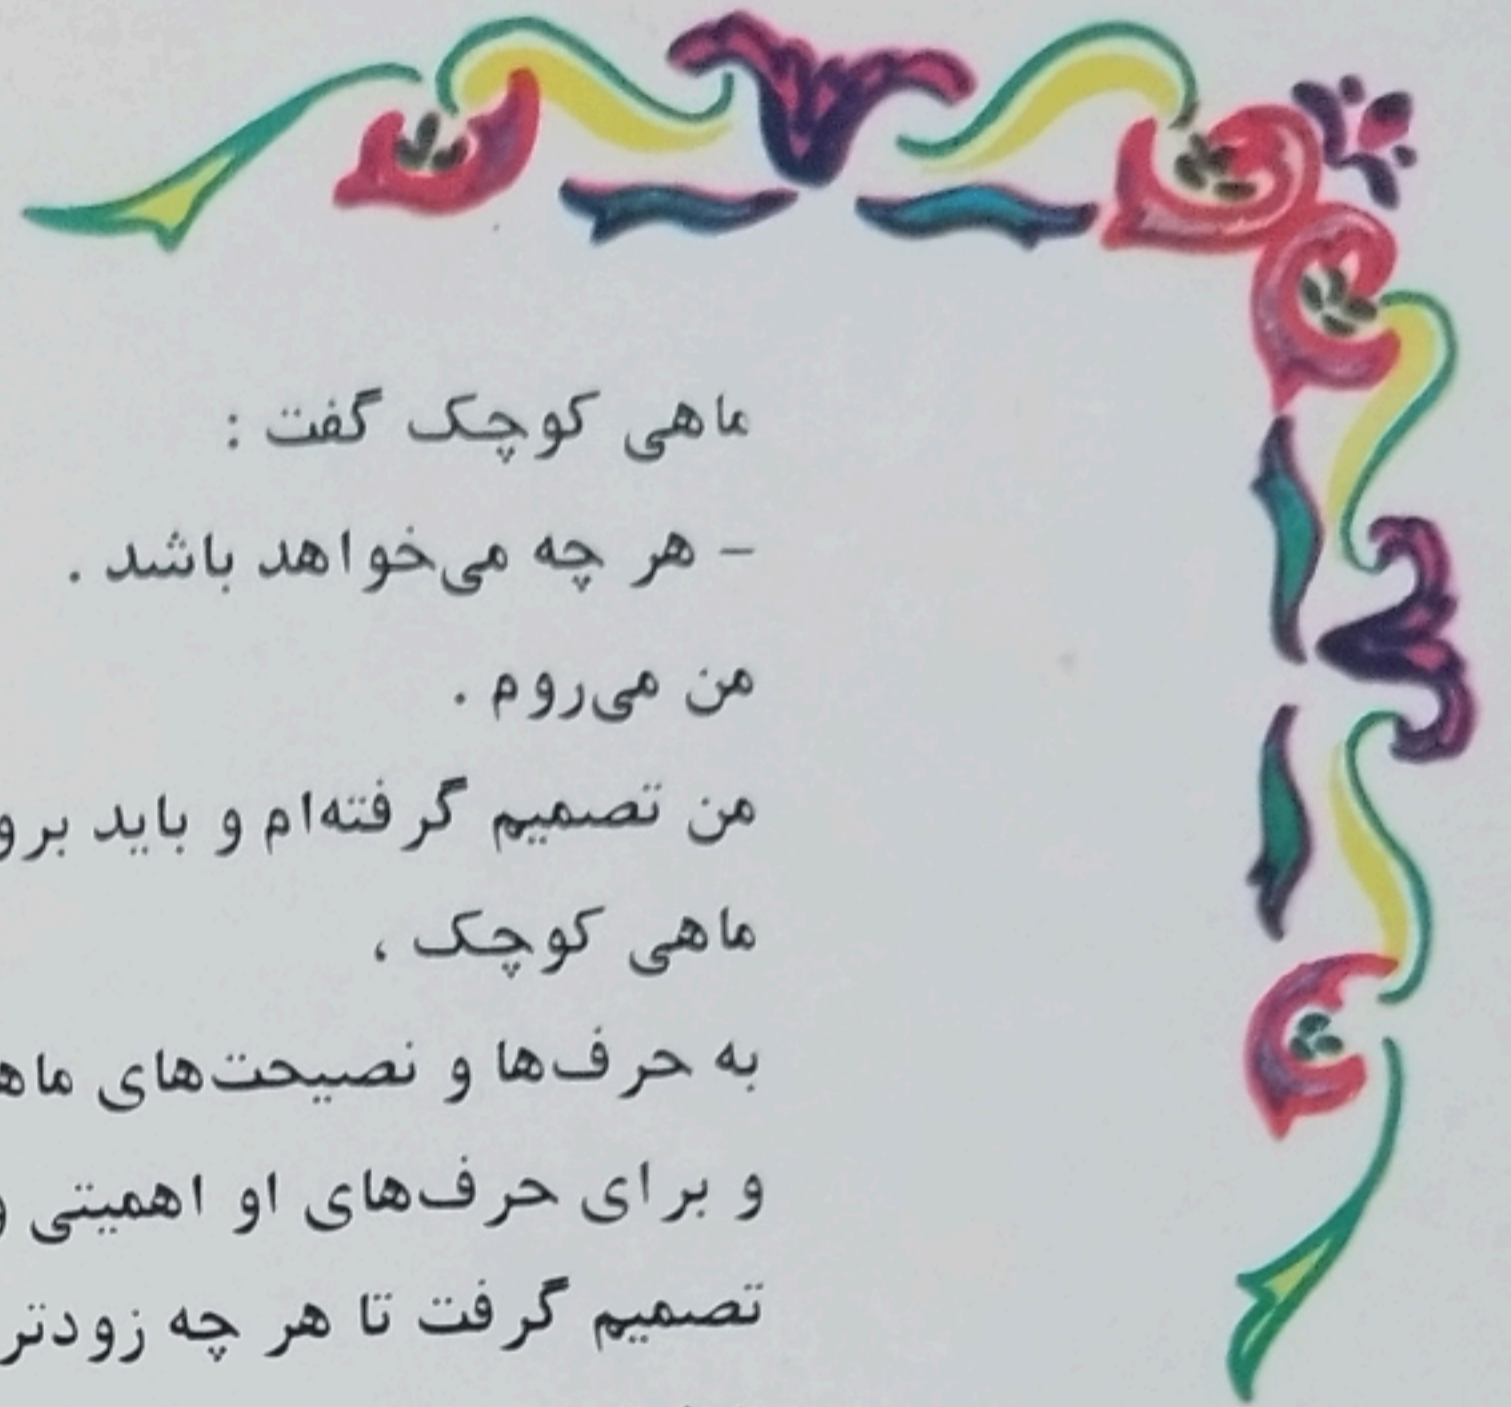 ماهی کوچک گفت :
– هر چه می‌خواهد باشد .
من می‌روم .
من تصمیم گرفته‌ام و باید
ماهی کوچک ،
به حرف‌ها و نصیحت‌های
و برای حرف‌های او اهمیتی
تصمیم گرفت تا هر چه زودتر